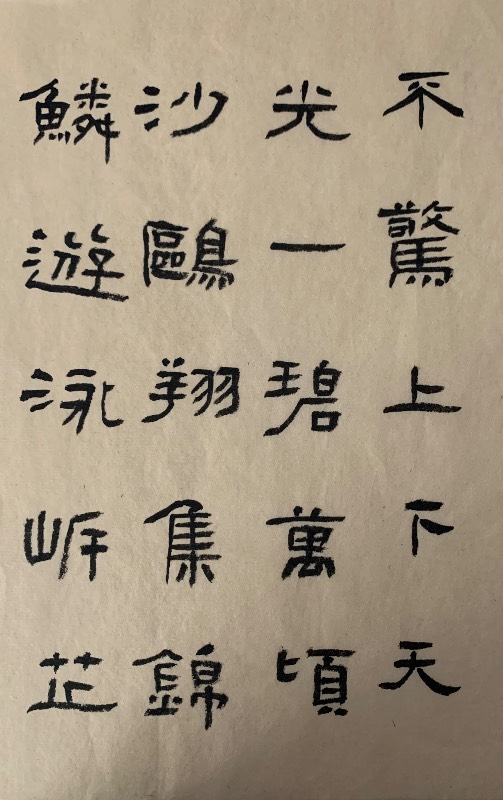 不驚上下天
光一碧萬頃
沙鷗翔集錦
鱗遊泳岸芷